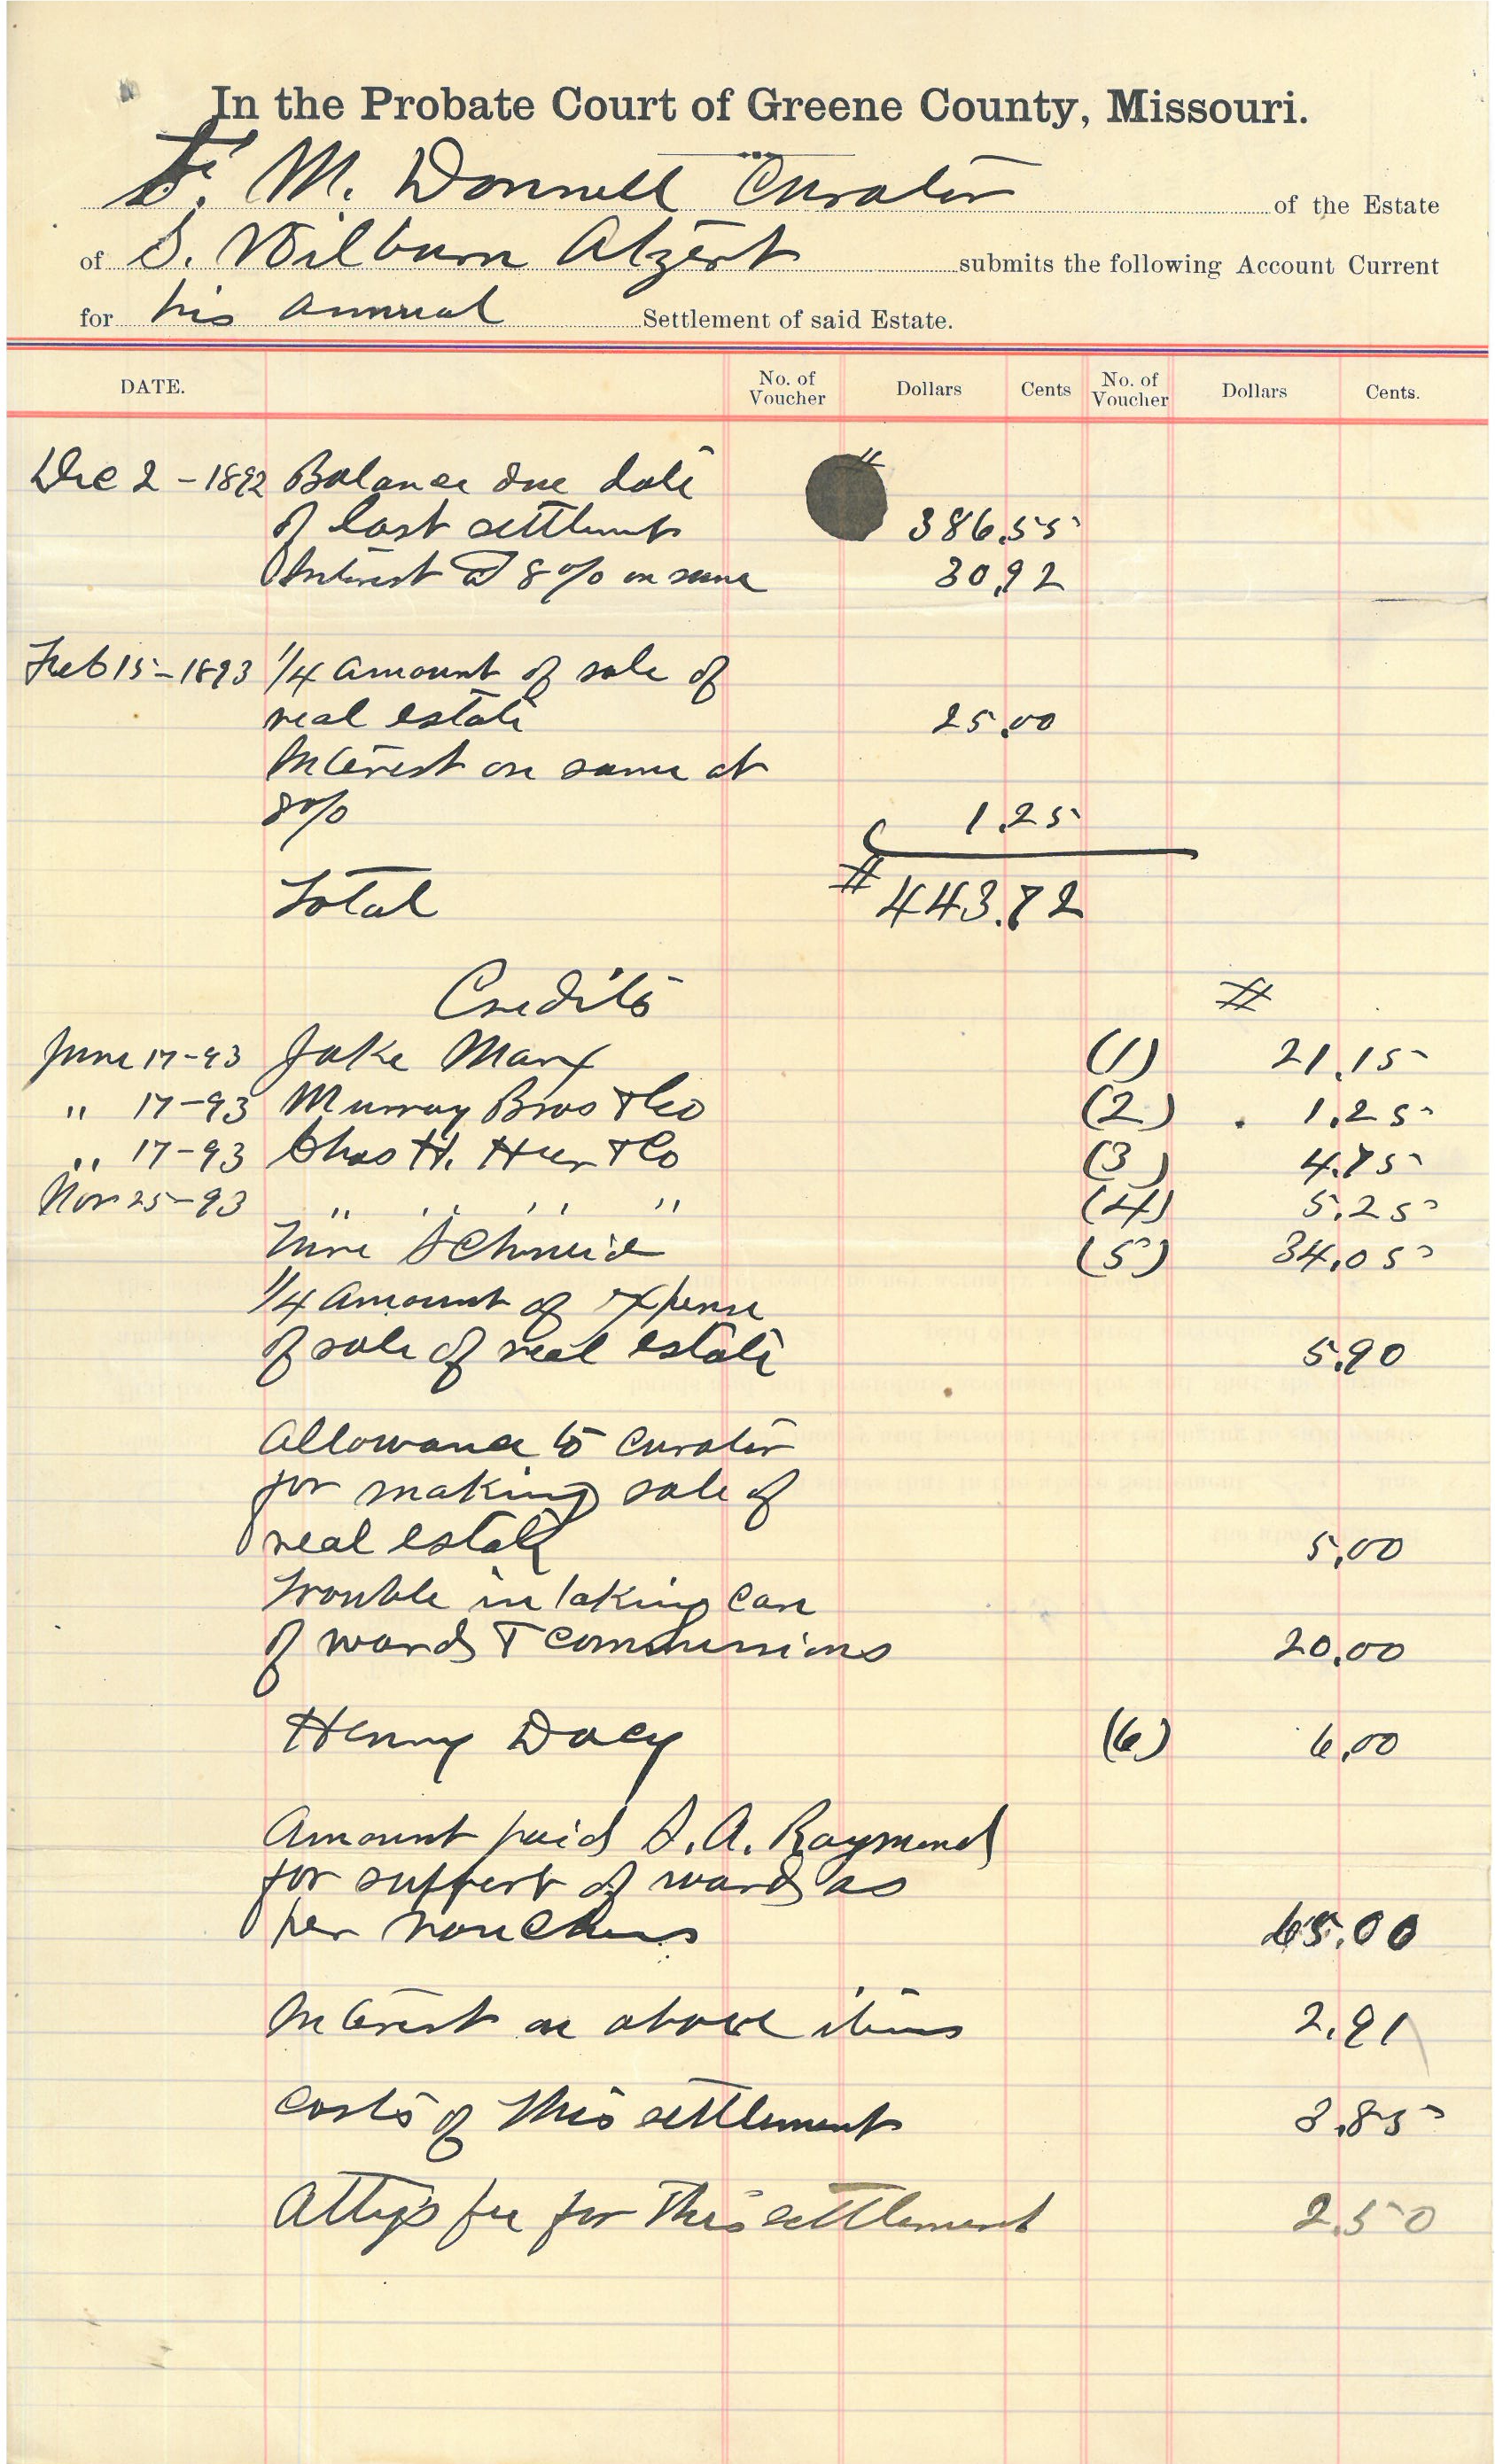 In the Probate Court of Greene County, Missouri.
F. M. Donnell Curator of the Estate
of S. Wilburn Alzert submits the following Account Current
for his annual Settlement of said Estate.
DATE. No. of Voucher Dollars Cents No. of Voucher Dollars Cents.
Dec 2 - 1892 Balance due date #
of last settlement 386.55
Interest @ 8% on same 30.92
Feb 15 - 1893 1/4 amount of sale of
real estate 25.00
Interest on same at
8% 1.25
Total # 443.72
Credits #
June 17-93 Jake Marx (1) 21.15
" 17-93 Murray Bros & Co (2) 1.25
" 17-93 Chas H. Heer & Co (3) 4.75
Nov 25-93 " " " " (4) 5.25
Schmid (5) 34.05
1/4 amount of expense
of sale of real estate 5.90
Allowance to curator
for making sale of
real estate 5.00
Trouble in taking care
of wards & commissions 20.00
Henry Dacy (6) 6.00
Amount paid S. A. Raymond
for support of wards as
per vouchers 65.00
Interest on above items 2.91
Costs of this settlement 3.85
Attys fee for this settlement 2.50